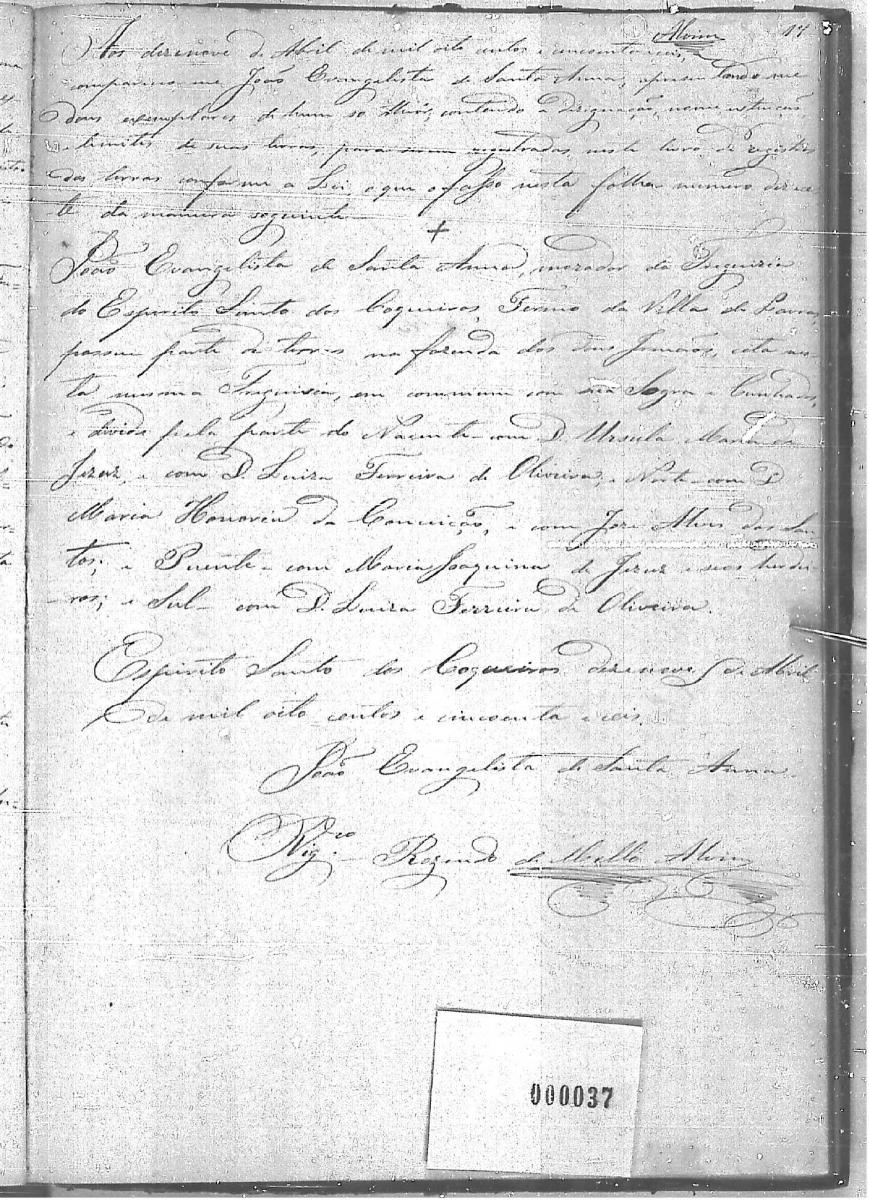 Alvim 17
Aos dezenove de Abril de mil oito centos e cincoenta e seis,
compareceu me João Evangelista de Santa Anna, apresentando me
dous exemplares de hum so theor, contendo a designação, nome
e limites de suas terras, para serem registradas neste livro de registro
das terras conforme a Lei, o que o fasso nesta folha numero dezese
te da maneira seguinte
João Evangelista de Santa Anna, morador da Freguizia
do Espirito Santo dos Coqueiros, Termo da Villa de Lavras,
possue parte de terras na fazenda dos dous
ta mesma Freguizia, em commum com sua Sogra e Cunhados,
e divide pela parte do Nacente com D. Ursula Maria de
Jezuz, e com D. Luiza Ferreira de Oliveira, e Norte com D.
Maria Honoria da Conceição, e com Joze Alves dos San
tos; e Puente com Maria Joaquina de Jezuz e seos herdei
ros; e Sul com D. Luiza Ferreira de Oliveira.
Espirito Santo dos Coqueiros dezenove de Abril
de mil oito centos e cincoenta e seis.
João Evangelista de Santa Anna.
Vig.ro Rozendo de Mello Alvim
000037